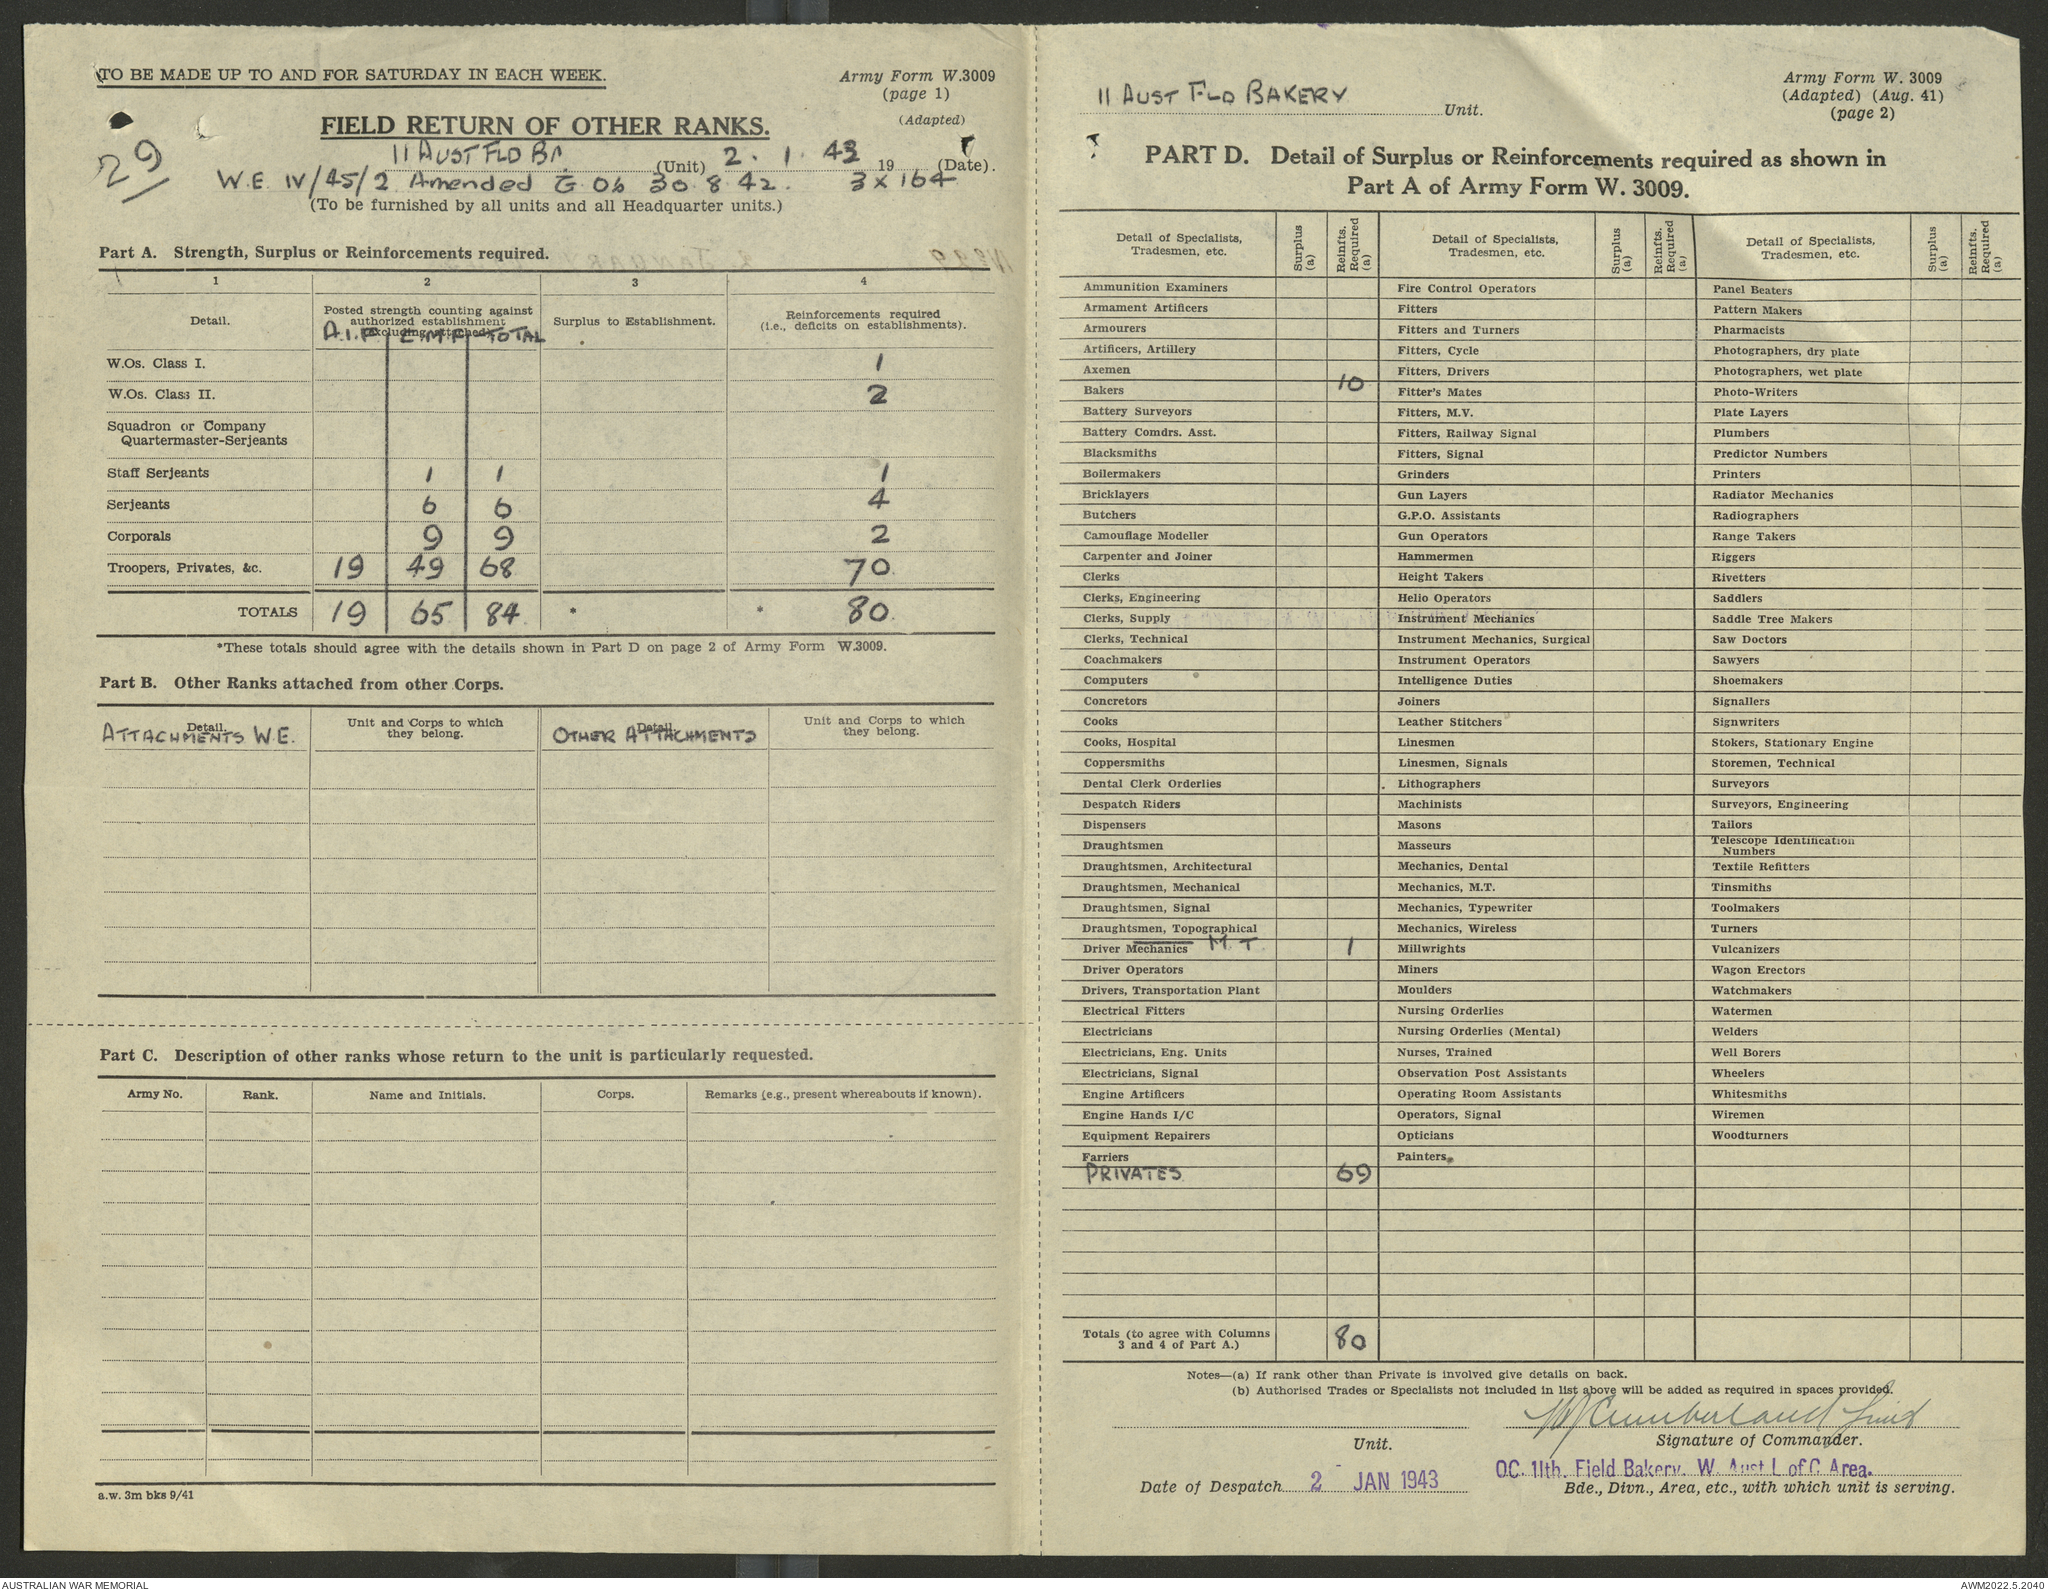 TO BE MADE UP TO AND FOR SATURDAY IN EACH WEEK.
Army Form W.3009
(page 1)
(Adapted)
29
FIELD RETURN OF OTHER RANKS.
11 AUST FLD BY (Unit) 2. 1. 43 19 (Date).
W.E. IV/45/2 Amended G Ob 30 8 42. 3 x 164
(To be furnished by all units and all Headquarter units.)
Part A. Strength, Surplus or Reinforcements required.
1 2 3 4
Detail. Posted strength counting against authorized establishment (excluding attached). Surplus to Establishment. Reinforcements required (i.e., deficits on establishments).
A.I.F. C.M.F. TOTAL
W.Os. Class I. 1
W.Os. Class II. 2
Squadron or Company Quartermaster-Serjeants
Staff Serjeants 1 1 1
Serjeants 6 6 4
Corporals 9 9 2
Troopers, Privates, &c. 19 49 68 70
TOTALS 19 65 84 * * 80
*These totals should agree with the details shown in Part D on page 2 of Army Form W.3009.
Part B. Other Ranks attached from other Corps.
Detail. Unit and Corps to which they belong. Detail. Unit and Corps to which they belong.
ATTACHMENTS W.E. OTHER ATTACHMENTS
Part C. Description of other ranks whose return to the unit is particularly requested.
Army No. Rank. Name and Initials. Corps. Remarks (e.g., present whereabouts if known).
a.w. 3m bks 9/41
11 AUST FLD BAKERY Unit.
Army Form W. 3009
(Adapted) (Aug. 41)
(page 2)
PART D. Detail of Surplus or Reinforcements required as shown in
Part A of Army Form W. 3009.
Detail of Specialists, Tradesmen, etc. Surplus (a) Reinfts. Required (a) Detail of Specialists, Tradesmen, etc. Surplus (a) Reinfts. Required (a) Detail of Specialists, Tradesmen, etc. Surplus (a) Reinfts. Required (a)
Ammunition Examiners Fire Control Operators Panel Beaters
Armament Artificers Fitters Pattern Makers
Armourers Fitters and Turners Pharmacists
Artificers, Artillery Fitters, Cycle Photographers, dry plate
Axemen Fitters, Drivers Photographers, wet plate
Bakers 10 Fitter's Mates Photo-Writers
Battery Surveyors Fitters, M.V. Plate Layers
Battery Comdrs. Asst. Fitters, Railway Signal Plumbers
Blacksmiths Fitters, Signal Predictor Numbers
Boilermakers Grinders Printers
Bricklayers Gun Layers Radiator Mechanics
Butchers G.P.O. Assistants Radiographers
Camouflage Modeller Gun Operators Range Takers
Carpenter and Joiner Hammermen Riggers
Clerks Height Takers Rivetters
Clerks, Engineering Helio Operators Saddlers
Clerks, Supply Instrument Mechanics Saddle Tree Makers
Clerks, Technical Instrument Mechanics, Surgical Saw Doctors
Coachmakers Instrument Operators Sawyers
Computers Intelligence Duties Shoemakers
Concretors Joiners Signallers
Cooks Leather Stitchers Signwriters
Cooks, Hospital Linesmen Stokers, Stationary Engine
Coppersmiths Linesmen, Signals Storemen, Technical
Dental Clerk Orderlies Lithographers Surveyors
Despatch Riders Machinists Surveyors, Engineering
Dispensers Masons Tailors
Draughtsmen Masseurs Telescope Identification Numbers
Draughtsmen, Architectural Mechanics, Dental Textile Refitters
Draughtsmen, Mechanical Mechanics, M.T. Tinsmiths
Draughtsmen, Signal Mechanics, Typewriter Toolmakers
Draughtsmen, Topographical Mechanics, Wireless Turners
Driver Mechanics M.T. 1 Millwrights Vulcanizers
Driver Operators Miners Wagon Erectors
Drivers, Transportation Plant Moulders Watchmakers
Electrical Fitters Nursing Orderlies Watermen
Electricians Nursing Orderlies (Mental) Welders
Electricians, Eng. Units Nurses, Trained Well Borers
Electricians, Signal Observation Post Assistants Wheelers
Engine Artificers Operating Room Assistants Whitesmiths
Engine Hands I/C Operators, Signal Wiremen
Equipment Repairers Opticians Woodturners
Farriers Painters
PRIVATES 69
Totals (to agree with Columns 3 and 4 of Part A.) 80
Notes—(a) If rank other than Private is involved give details on back.
(b) Authorised Trades or Specialists not included in list above will be added as required in spaces provided.
Cumberland Lieut
Unit. Signature of Commander.
OC. 11th. Field Bakery. W. Aust L of C Area.
Date of Despatch 2 JAN 1943 Bde., Divn., Area, etc., with which unit is serving.
AUSTRALIAN WAR MEMORIAL
AWM2022.5.2040